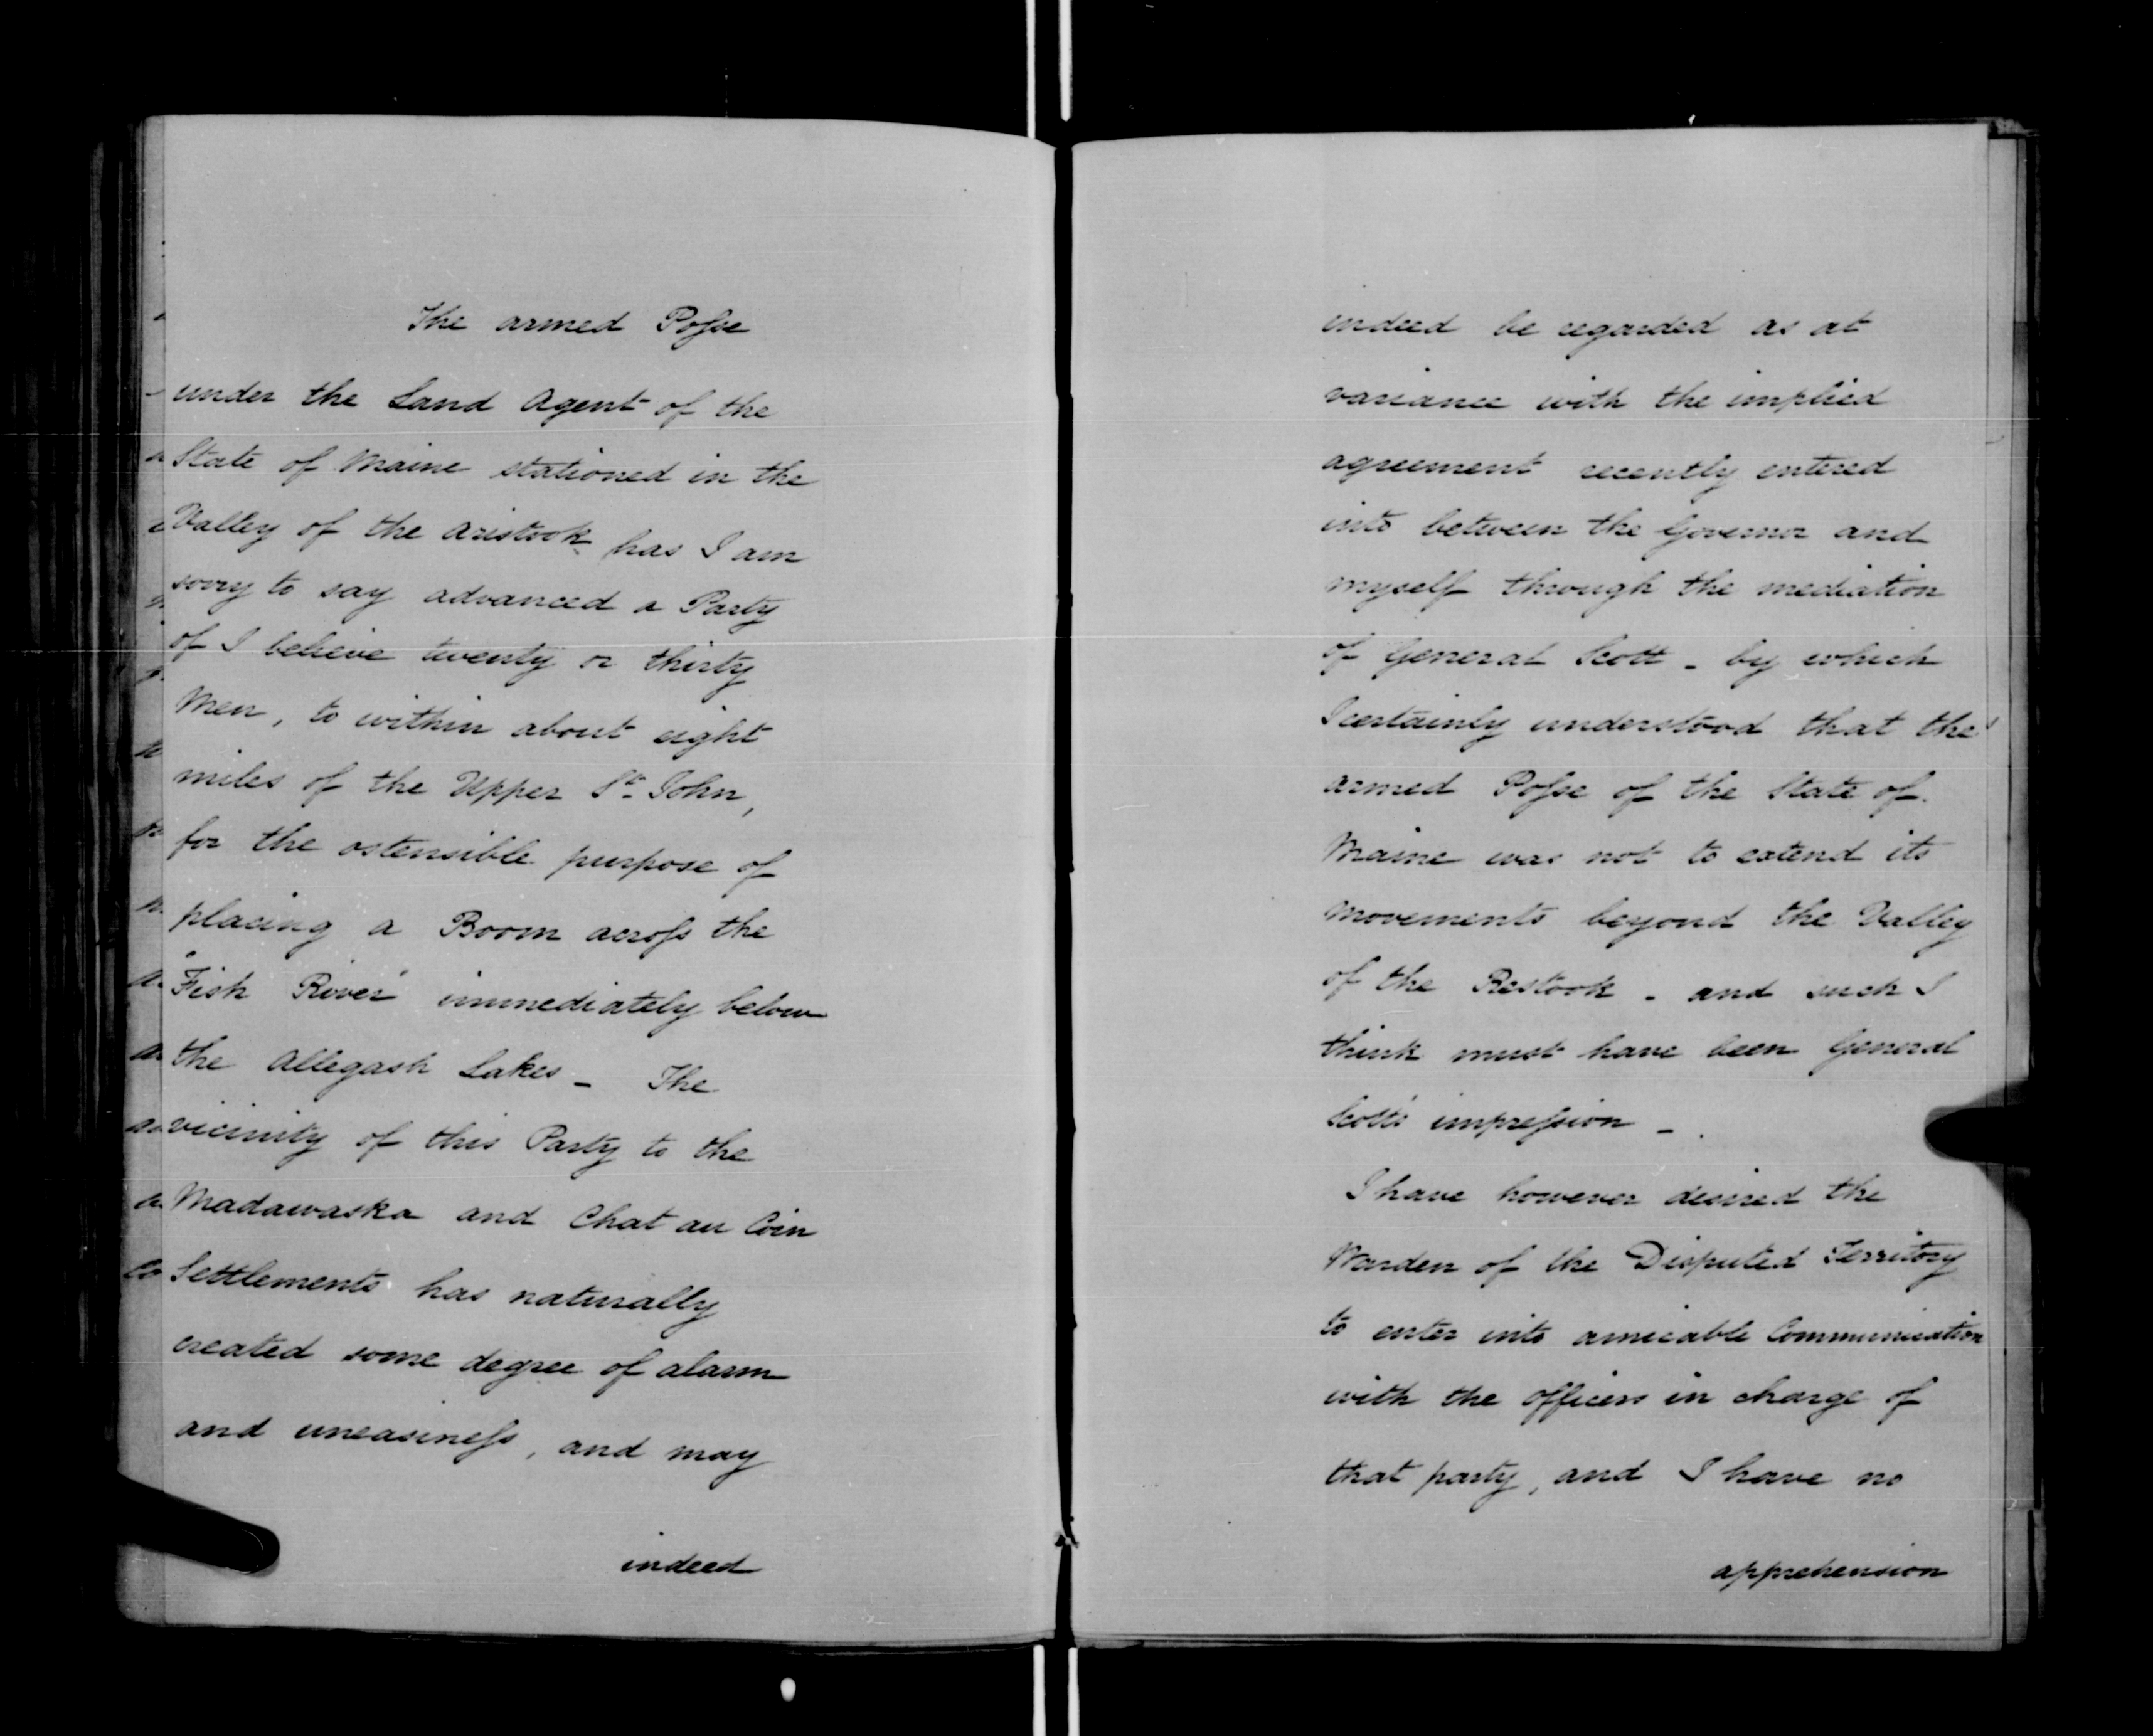 The armed Posse
under the Land Agent of the
State of Maine stationed in the
Valley of the Aristook has I am
sorry to say advanced a Party
of I believe twenty or thirty
Men, to within about eight
miles of the Upper St. John,
for the ostensible purpose of
placing a Boom across the
"Fish River" immediately below
the Allegash Lakes - The
vicinity of this Party to the
Madawaska and Chat au Coin
Settlements has naturally
created some degree of alarm
and uneasiness, and may
indeed
indeed be regarded as at
variance with the implied
agreement recently entered
into between the Governor and
myself through the mediation
of General Scott - by which
I certainly understood that the
armed Posse of the State of
Maine was not to extend its
movements beyond the Valley
of the Restook - and such I
think must have been General
Scott's impression -
I have however desired the
Warden of the Disputed Territory
to enter into amicable Communication
with the officers in charge of
that party, and I have no
apprehension